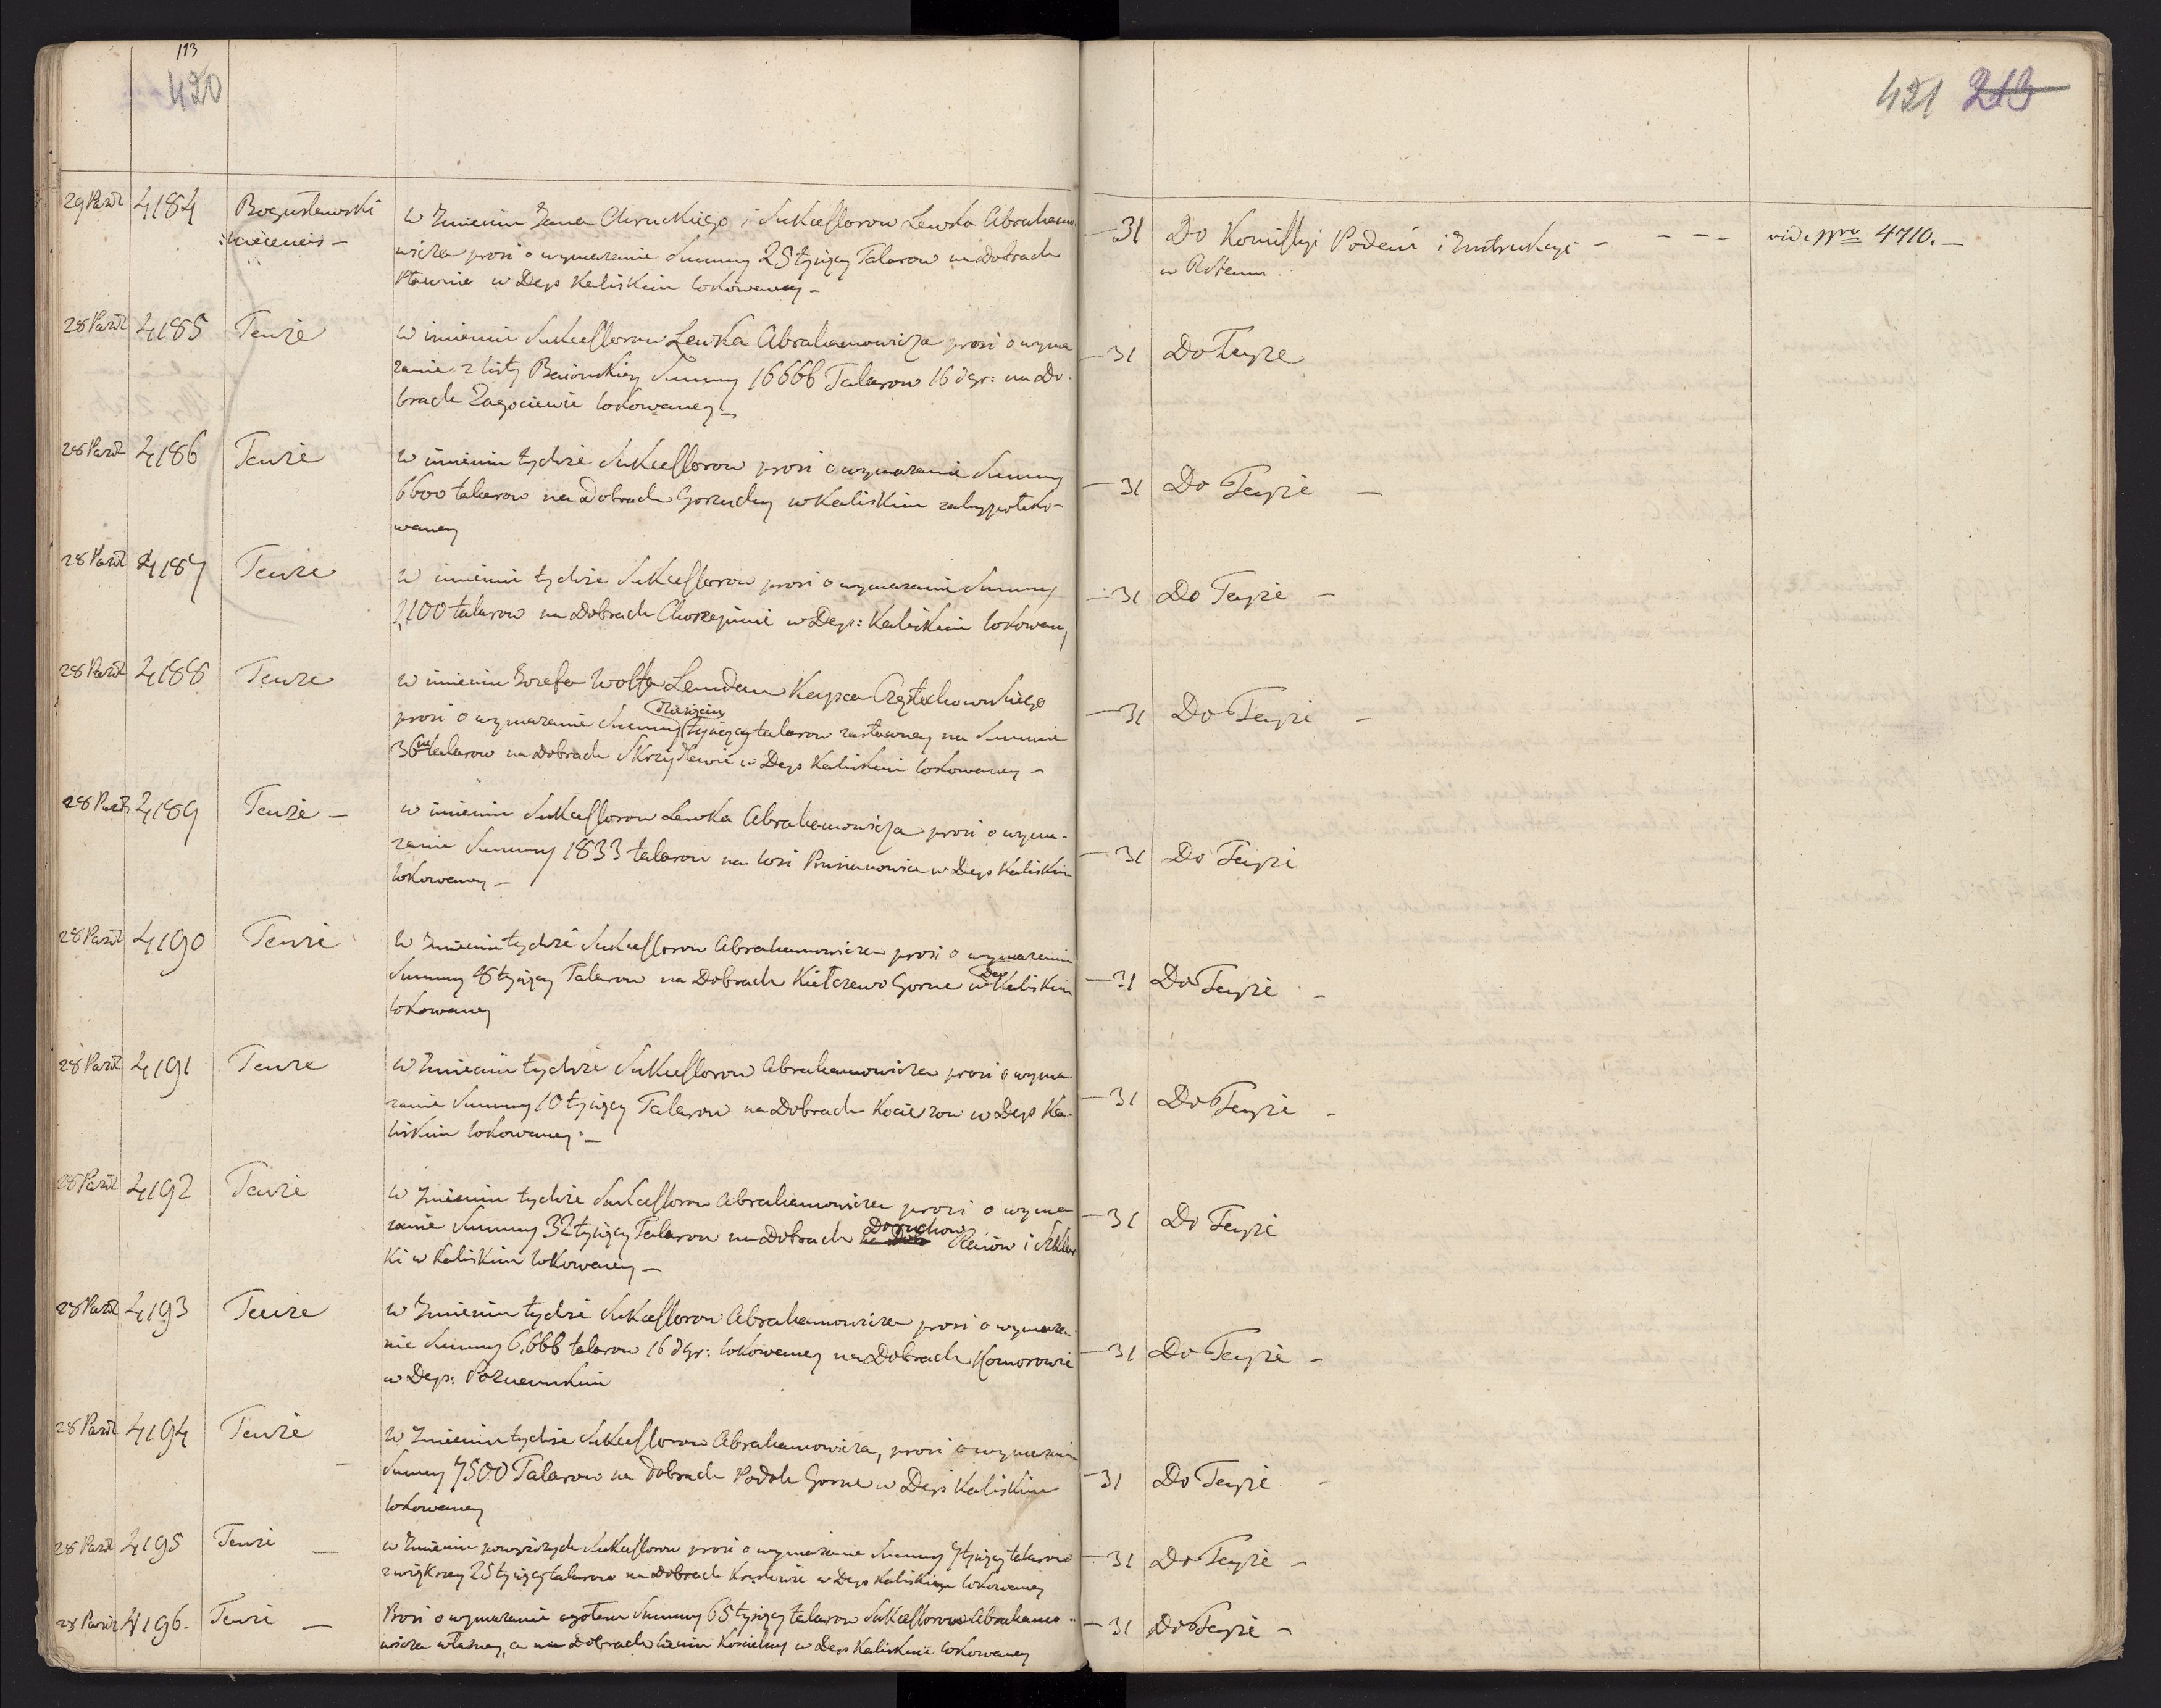 113
420
421 213
29 Paźdz 4184 Bogusławski
w Imieniu Jana Chruckiego i Sukcessorow Lewka Abrahamo-
wicza prosi o wymazanie Summy 25 tysięcy Talarow na Dobrach
w Dep Kaliskim lokowaney –
– 31 Do Kommissyi Podań i Instrukcyi – – – –
vide nro 4710. –
28 Paźdz 4185 Tenże
w imieniu Sukcessorow Lewka Abrahamowicza prosi o wyma
zanie z listy Baionskiey Summy 16666 Talarow 16 dgr: na Do-
brach lokowaney –
– 31 Do Teyże
28 Paźdz 4186 Tenże
w imieniu tychże Sukcessorow prosi o wymazanie Summy
6600 talarow na Dobrach Gorzuchy w Kaliskim zahypoteko-
waney
– 31 Do Teyże –
28 Paźdz 4187 Tenże
w imieniu tychże Sukcessorow prosi o wymazanie Summy
1100 talarow na Dobrach w Dep: Kaliskim lokowaney
– 31 Do Teyże –
28 Paźdz 4188 Tenże
w imieniu Jozefa Wolfa Landau Kupca Częstochowskiego
prosi o wymazanie Summy dziesięciu tysięcy talarow zastawney na Summie
36 talarow na Dobrach w Dep Kaliskim lokowaney –
– 31 Do Teyże –
28 Paźdz 4189 Tenże –
w imieniu Sukcessorow Lewka Abrahamowicza prosi o wyma-
zanie Summy 1833 talarow na Wsi w Dep Kaliskim
lokowaney –
– 31 Do Teyże
28 Paźdz 4190 Tenże
w Imieniu tychże Sukcessorow Abrahamowicza prosi o wymazanie
Summy tysięcy Talarow na Dobrach Kiełczewo Gorne w Dep Kaliskim
lokowaney
– 31 Do Teyże –
28 Paźdz 4191 Tenże
w Imieniu tychże Sukcessorow Abrahamowicza prosi o wyma-
zanie Summy 10 tysięcy Talarow na Dobrach w Dep Ka-
liskim lokowaney. –
– 31 Do Teyże –
28 Paźdz 4192 Tenże
w Imieniu tychże Sukcessorow Abrahamowicza prosi o wyma
zanie Summy 32 tysięcy Talarow na Dobrach Doruchow i Szklar
ki w Kaliskim lokowaney –
– 31 Do Teyże
28 Paźdz 4193 Tenże
w Imieniu tychże Sukcessorow Abrahamowicza prosi o wymaza-
nie Summy 6,666 talarow 16 dgr: lokowaney na Dobrach Komorowie
w Dep: Poznanskim
– 31 Do Teyże –
28 Paźdz 4194 Tenże –
w Imieniu tychże Sukcessorow Abrahamowicza, prosi o wymazanie
Summy 7500 Talarow na Dobrach Podole Gorne w Dep Kaliskim
lokowaney
– 31 Do Teyże –
28 Paźdz 4195 Tenże –
w Imieniu powyższych Sukcessorow prosi o wymazanie Summy 7 tysięcy talarow
z większey 25 tysięcy talarow na Dobrach w Dep Kaliskiem lokowaney
– 31 Do Teyże –
28 Paźdz 4196. Tenże –
Prosi o wymazanie ogołem Summy 65 tysięcy talarow Sukcessorow Abrahamo-
wicza własney, a na Dobrach Kościelny w Dep Kaliskim lokowaney
– 31 Do Teyże –